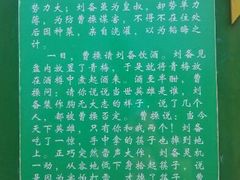 势力大；刘备虽为皇叔，却势单力
薄，为防曹操谋害，不得不在住处
后园种菜，亲自浇灌，以为韬晦之
计。
一日，曹操请刘备饮酒，刘备见
盘内放置了青梅，于是就将青梅放
在酒樽中煮起酒来，酒至半酣，曹
操问：请你说说当世英雄是谁，刘
备装作胸无大志的样子，说了几个
人，都被曹操否定。曹操说：当今
天下英雄，只有你和我两个！刘备
吃了一惊，手中拿的筷子也掉到地
上，正巧突然雷声大作，刘备灵机
一动，从容地低下身拾起筷子，说